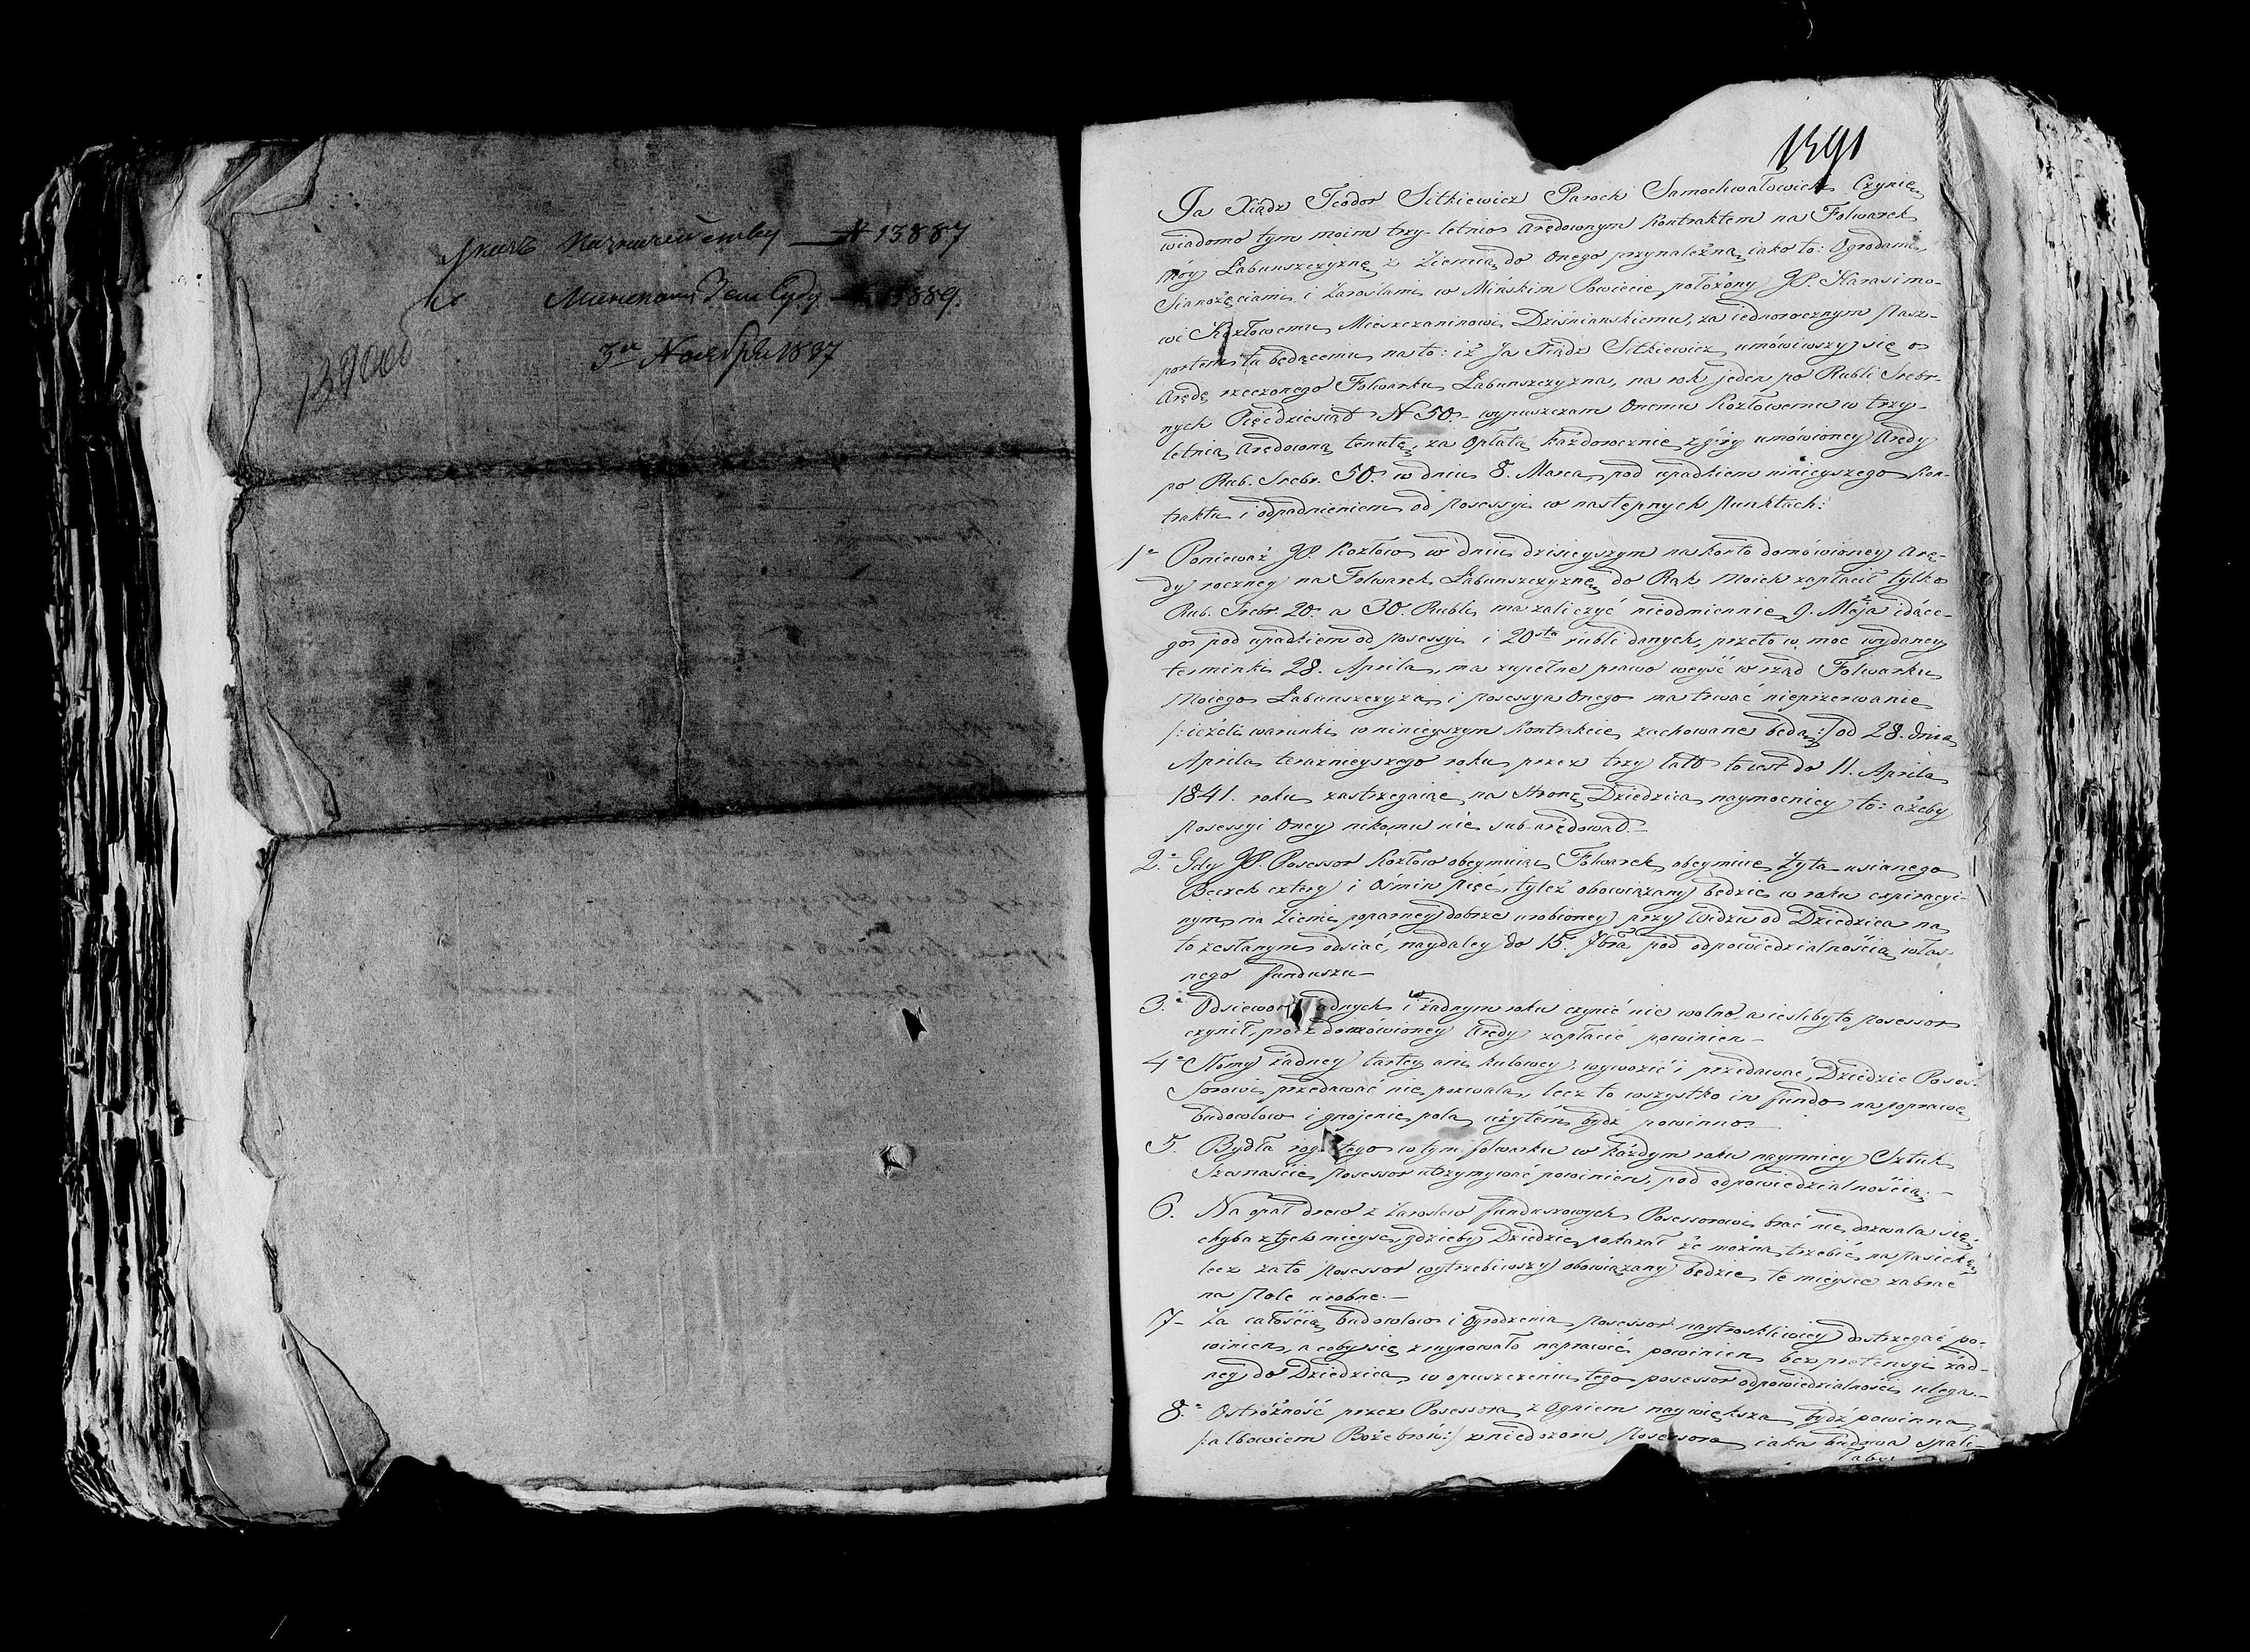 № 13887
№ 13889.
3го Ноября 1837
1391
Ja Xiądz Teodor Sitkiewicz Paroch Samochwałowicki Czynię
wiadomo tym moim trzy-letnio Arędownym Kontraktem na Folwarek
móy Łabunszczyznę z Ziemią do Onego przynależną, iako to: Ogrodami
Sianożęciami i Zaroślami w Mińskim Powiecie położony JP. Harasimo-
wi Kozłowemu Mieszczaninowi Dziśnianskiemu, za iednorocznym Pasz-
portem tu będącemu na to: iż Ja Xiądz Sitkiewicz umówiwszy się o
Arędę rzeczonego Folwarku Łabunszczyzna, na rok jeden po Rubli Srebr-
nych Pięćdziesiąt N 50.- wypuszczam Onemu Kozłowemu w trzy-
letnią Arędowną tenutę, za Opłatą każdorocznie z góry umówioney Arędy
po Rub. Srebr. 50. w dniu 8. Marca, pod upadkiem ninieyszego Kon-
traktu i odpadnieniem od Posessyi w następnych Punktach:
1° Ponieważ JP. Kozłow w dniu dzisieyszym na konto domówioney Arę-
dy roczney na Folwarek Łabunszczyznę do Rąk Moich zapłacił tylko
Rub. Srebr. 20. a 30. Rubli ma zaliczyć nieodmiennie 9. Maja idące-
go pod upadkiem od Posessyi i 20sta rubli danych, przeto w moc wydaney
terminki 28. Aprila, ma zupełne prawo weyść w rząd Folwarku
Moiego Łabunszczyzn i Posessya Onego ma trwać nieprzerwanie
/: ieżeli warunki w ninieyszym Kontrakcie zachowane będą :/ od 28. dnia
Aprila teraznieyszego roku przez trzy lat to iest do 11. Aprila
1841. roku zastrzegaiąc na Stronę Dziedzica naymocniey to: ażeby
Posessyi Oney nikomu nie sub-arędował.-
2.° Gdy JP. Posessor Kozłow obeymuiąc Folwarek, obeymuie Żyta usianego
Beczek cztery i Ośmin pięć, tyleż obowiązany będzie w roku expiracyi-
nym, na Ziemi poparney dobrze urobioney przy Widzu od Dziedzica na
to zesłanym odsiać, naydaley do 15. 7bra pod odpowiedzialnością włas-
nego funduszu-
3.° Odsiewow żadnych w żadnym roku czynić nie wolno, a ieśliby to Posessor
czynił, procz domówioney Arędy zapłacić powinien-
4° Słomy żadney tartey ani kulowey, wywozić i przedawać, Dziedzic Poses-
sorowi przedawać nie pozwala, lecz to wszystko in fundo na poprawę
budowlow i gnojenie pola użytem bydź powinno.-
5. Bydła rogatego w tym folwarku w każdym roku naymniey Sztuk
Szesnaście Posessor utrzymywać powinien, pod odpowiedzialnością.-
6. Na opał drew z Zaroslow funduszowych Posessorowi brać nie dozwala się
chyba z tych mieysc, gdzieby Dziedzic pokazał że można trzebić na Pasiekę
lecz za to Posessor wytrzebiwszy obowiązany będzie te mieysce zabrać
na Pole urobne.-
7- Za całością budowlow i Ogrodzenia Posessor naytroskliwiey dostrzegać po-
winien, a coby się zruynowało naprawić powinien bez pretensyi żad-
ney do Dziedzica, w opuszczeniu tego posessor odpowiedzialności ulega.-
8.° Ostróżność przez Posessora z Ogniem naywiększa bydź powinna
/: albowiem Boże broń :/ z niedozoru Posessora iaka budowa spali-
łaby